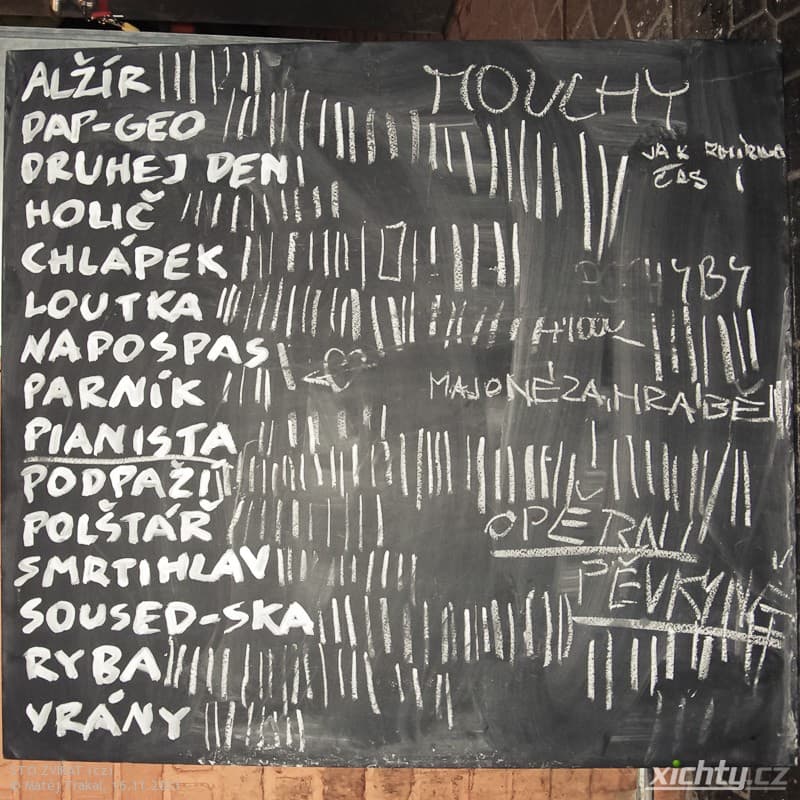 ALŽÍR
MOUCHY
DAP-GEO
DRUHEJ DEN
JAK
ČAS
HOLIČ
CHLÁPEK
LOUTKA
NAPOSPAS
PARNÍK
MAJONÉZA, HRABĚ
PIANISTA
PODPAŽÍ
POLŠTÁŘ
OPĚRNÍ
SMRTIHLAV
PĚVKYNĚ
SOUSED-SKA
RYBA
VRÁNY
STO ZVÍŘAT (CZ)
© Matěj Trakal, 16.11.2011
xichty.cz